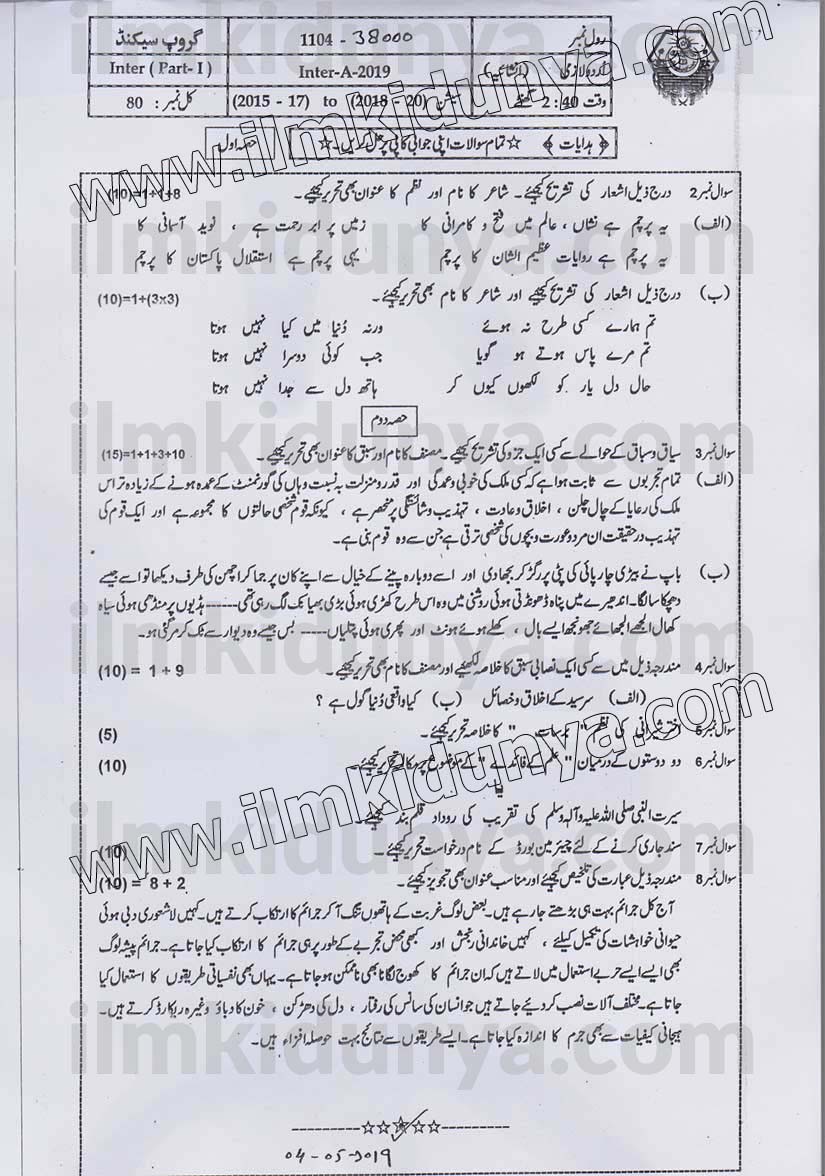 رول نمبر 1104 - 38000 گروپ سیکنڈ
اردو لازمی (انشائیہ) Inter-A-2019 Inter ( Part- I )
وقت 2 : 40 گھنٹے سیشن (2015 - 17) to (2018 - 20) کل نمبر : 80
﴿ ہدایات ﴾ ☆ تمام سوالات اپنی جوابی کاپی پر حل کریں۔ ☆ حصہ اول
سوال نمبر 2 درج ذیل اشعار کی تشریح کیجئیے۔ شاعر کا نام اور نظم کا عنوان بھی تحریر کیجئیے۔ (10)=1+1+8
(الف) یہ پرچم ہے نشاں ، عالم میں فتح و کامرانی کا زمیں پر ابر رحمت ہے ، نوید آسمانی کا
یہ پرچم ہے روایات عظیم الشان کا پرچم یہی پرچم ہے استقلال پاکستان کا پرچم
(ب) درج ذیل اشعار کی تشریح کیجئیے اور شاعر کا نام بھی تحریر کیجئیے۔ (10)=1+(3x3)
تم ہمارے کسی طرح نہ ہوئے ورنہ دُنیا میں کیا نہیں ہوتا
تم مرے پاس ہوتے ہو گویا جب کوئی دوسرا نہیں ہوتا
حال دل یار کو لکھوں کیوں کر ہاتھ دل سے جدا نہیں ہوتا
حصہ دوم
سوال نمبر 3 سیاق و سباق کے حوالے سے کسی ایک جزو کی تشریح کیجئیے۔ مصنف کا نام اور سبق کا عنوان بھی تحریر کیجئیے۔ (15)=1+1+3+10
(الف) تمام تجربوں سے ثابت ہوا ہے کہ کسی ملک کی خوبی و عمدگی اور قدر و منزلت بہ نسبت وہاں کی گورنمنٹ کے عمدہ ہونے کے زیادہ تر اس
ملک کی رعایا کے چال چلن ، اخلاق و عادت ، تہذیب و شائستگی پر منحصر ہے ، کیونکہ قوم شخصی حالتوں کا مجموعہ ہے اور ایک قوم کی
تہذیب در حقیقت ان مرد و عورت و بچوں کی شخصی ترقی ہے جن سے وہ قوم بنی ہے۔
(ب) باپ نے بیڑی چارپائی کی پٹی پر رگڑ کر بجھا دی اور اسے دوبارہ پینے کے خیال سے اپنے کان پر جما کر اچھن کی طرف دیکھا تو اسے جیسے
دھچکا سا لگا۔ اندھیرے میں پناہ ڈھونڈتی ہوئی روشنی میں وہ اس طرح کھڑی ہوئی بڑی بھیانک لگ رہی تھی۔------ ہڈیوں پر منڈھی ہوئی سیاہ
کھال الجھے الجھائے جھونجھ ایسے بال ، کھلے ہوئے ہونٹ اور پھری ہوئی پتلیاں----- بس جیسے وہ دیوار سے ٹک کر مر گئی ہو۔
سوال نمبر 4 مندرجہ ذیل میں سے کسی ایک نصابی سبق کا خلاصہ لکھیئے اور مصنف کا نام بھی تحریر کیجئیے۔ (10) = 1 + 9
(الف) سرسید کے اخلاق و خصائل (ب) کیا واقعی دُنیا گول ہے ؟
سوال نمبر 5 اختر شیرانی کی نظم " برسات " کا خلاصہ تحریر کیجئیے۔ (5)
سوال نمبر 6 دو دوستوں کے درمیان " علم کے فائدے " کے موضوع پر مکالمہ تحریر کیجئیے۔ (10)
یا
سیرت النبی صلی اللہ علیہ وآلہ وسلم کی تقریب کی روداد قلم بند کیجئیے۔
سوال نمبر 7 سند جاری کرنے کے لئے چیئرمین بورڈ کے نام درخواست تحریر کیجئیے۔ (10)
سوال نمبر 8 مندرجہ ذیل عبارت کی تلخیص کیجئیے اور مناسب عنوان بھی تجویز کیجئیے۔ (10) = 8 + 2
آج کل جرائم بہت ہی بڑھتے جا رہے ہیں۔ بعض لوگ غربت کے ہاتھوں تنگ آ کر جرائم کا ارتکاب کرتے ہیں۔ کہیں لاشعوری دبی ہوئی
حیوانی خواہشات کی تکمیل کیلئے ، کہیں خاندانی رنجش اور کبھی محض تجربے کے طور پر ہی جرائم کا ارتکاب کیا جاتا ہے۔ جرائم پیشہ لوگ
بھی ایسے ایسے حربے استعمال میں لاتے ہیں کہ ان جرائم کا کھوج لگانا بھی ناممکن ہو جاتا ہے۔ یہاں بھی نفسیاتی طریقوں کا استعمال کیا
جاتا ہے۔ مختلف آلات نصب کر دئیے جاتے ہیں جو انسان کی سانس کی رفتار ، دل کی دھڑکن ، خون کا دباؤ وغیرہ ریکارڈ کرتے ہیں۔
ہیجانی کیفیات سے بھی جرم کا اندازہ کیا جاتا ہے۔ ایسے طریقوں سے نتائج بہت حوصلہ افزاء ہیں۔
---------☆☆☆☆☆---------
04-05-2019
www.ilmkidunya.com
www.ilmkidunya.com
ilmkidunya.com
ilmkidunya.com
ilmkidunya.com
ilmkidunya.com
ilmkidunya.com
ilmkidunya.com